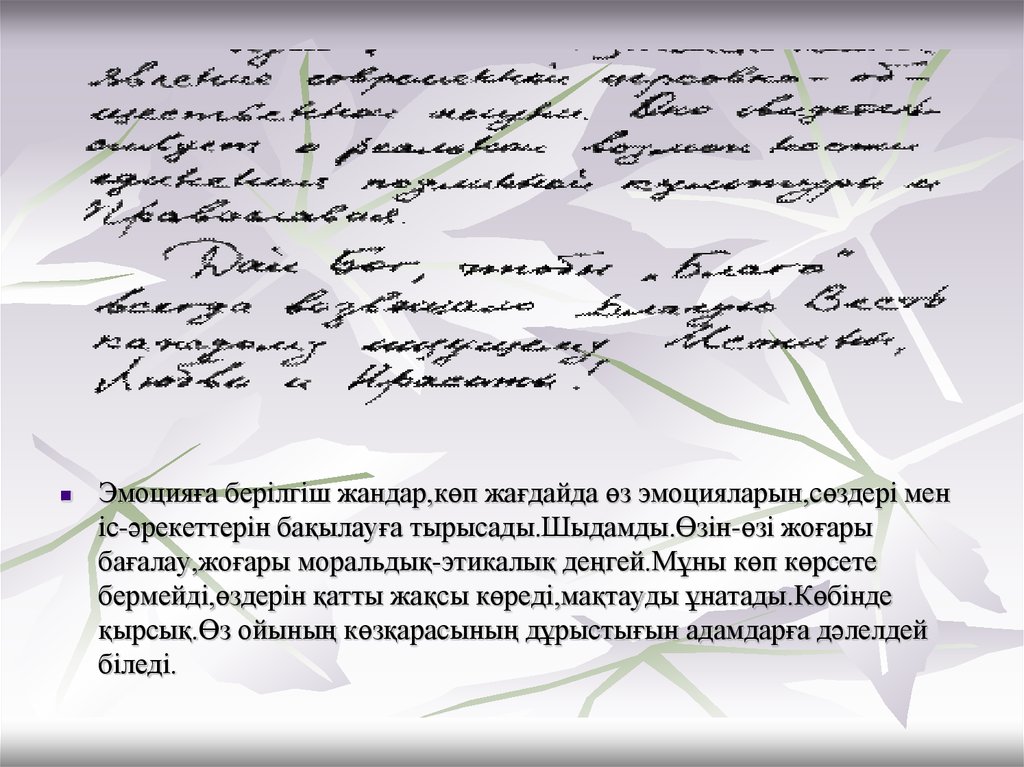 явление современной церковно-об-
щественной жизни. Оно свидетель
ствует о реальной возможности
единения подлинной культуры и
Православия.
Дай Бог, чтобы „Благо"
всегда возвещало Благую Весть
каждому ищущему Истины,
Любви и Красоты.
Эмоцияға берілгіш жандар,көп жағдайда өз эмоцияларын,сөздері мен
іс-әрекеттерін бақылауға тырысады.Шыдамды.Өзін-өзі жоғары
бағалау,жоғары моральдық-этикалық деңгей.Мұны көп көрсете
бермейді,өздерін қатты жақсы көреді,мақтауды ұнатады.Көбінде
қырсық.Өз ойының көзқарасының дұрыстығын адамдарға дәлелдей
біледі.